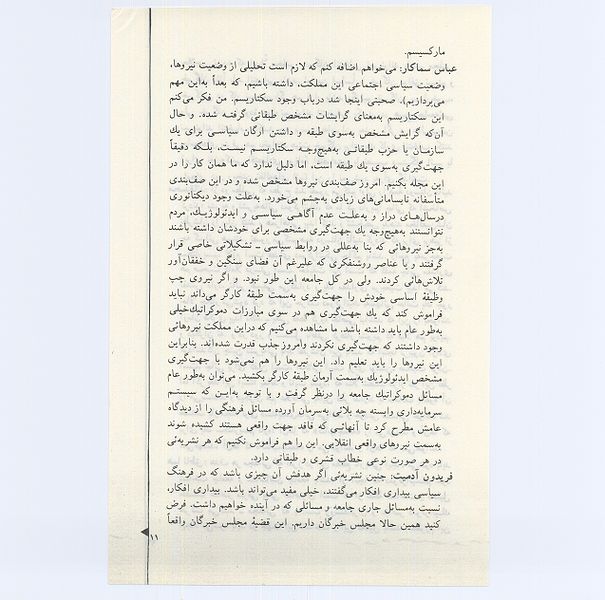 مارکسیسم.
عباس سماکار: می‌خواهم اضافه کنم که لازم است تحلیلی از وضعیت نیروها،
وضعیت سیاسی اجتماعی این مملکت، داشته باشیم، که بعداً به‌این مهم
می‌پردازیم). صحبتی اینجا شد درباب وجود سکتاریسم. من فکر می‌کنم
این سکتاریسم به‌معنای گرایشات مشخص طبقاتی گرفتـه شده. و حال
آن‌که گرایش مشخص به‌سوی طبقه و داشتن ارگان سیاسـی برای یك
سازمـان یا حزب طبقاتـی به‌هیچ‌وجـه سکتاریسـم نیسـت، بلـکه دقیقاً
جهت‌گیری به‌سوی یك طبقه است، اما دلیل ندارد که ما همان کار را در
این مجله بکنیم. امروز صف‌بندی نیروها مشخص شده و در این صف‌بندی
متأسفانه نابسامانی‌های زیادی به‌چشم می‌خورد. به‌علت وجود دیکتاتوری
درسال‌هـای دراز و به‌علـت عدم آگاهـی سیاسـی و ایدئولوژیـك، مردم
نتوانستند به‌هیچ‌وجه یك جهت‌گیری مشخصی برای خودشان داشته باشند
به‌جز نیروهائی که بنا به‌عللی در روابط سیاسی ـ تشکیلاتی خاصی قرار
گرفتند و یا عناصر روشنفکری که علیرغم آن فضای سنگین و خفقان‌آور
تلاش‌هائی کردند. ولی در کل جامعه این طور نبود. و اگر نیروی چپ
وظیفهٔ اساسی خودش را جهت‌گیری به‌سمت طبقهٔ کارگر می‌داند نباید
فراموش کند که یك جهت‌گیری هم در سوی مبارزات دموکراتیك‌خیلی
به‌طور عام باید داشته باشد. ما مشاهده می‌کنیم که دراین مملکت نیروهائی
وجود داشتند که جهت‌گیری نکردند وامروز جذب قدرت شده‌اند. بنابراین
این نیروها را باید تعلیم داد. این نیروها را هم نمی‌شود با جهت‌گیری
مشخص ایدئولوژیك به‌سمت آرمان طبقهٔ کارگر بکشید. می‌توان به‌طور عام
مسائل دموکراتیك جامعه را درنظر گرفت و با توجه به‌ایـن که سیستـم
سرمایه‌داری وابسته چه بلائی به‌سرمان آورده مسائل فرهنگی را از دیدگاه
عامش مطرح کرد تا آنهائـی که فاقد جهت واقعی هستند کشیده شوند
به‌سمت نیروهای واقعی انقلابی. این را هم فراموش نکنیم که هر نشریه‌ئی
در هر صورت نوعی خطاب قشری و طبقاتی دارد.
فریدون آدمیت: چنین نشریه‌ئی اگر هدفش آن چیزی باشد که در فرهنگ
سیاسی بیداری افکار می‌گفتند. خیلی مفید می‌تواند باشد. بیداری افکار،
نسبت به‌مسائل جاری جامعه و مسائلی که در آینده خواهیم داشت. فرض
کنید همین حالا مجلس خبرگان داریم. این قضیهٔ مجلس خبرگان واقعاً
۱۱